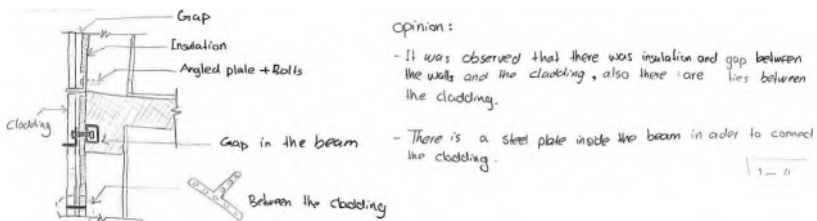 Gap
Insulation
Angled plate + Bolts
Cladding
Gap in the beam
Between the cladding
opinion :
- It was observed that there was insulation and gap between
the walls and the cladding, also there are ties between
the cladding.
- There is a steel plate inside the beam in order to connect
the cladding.